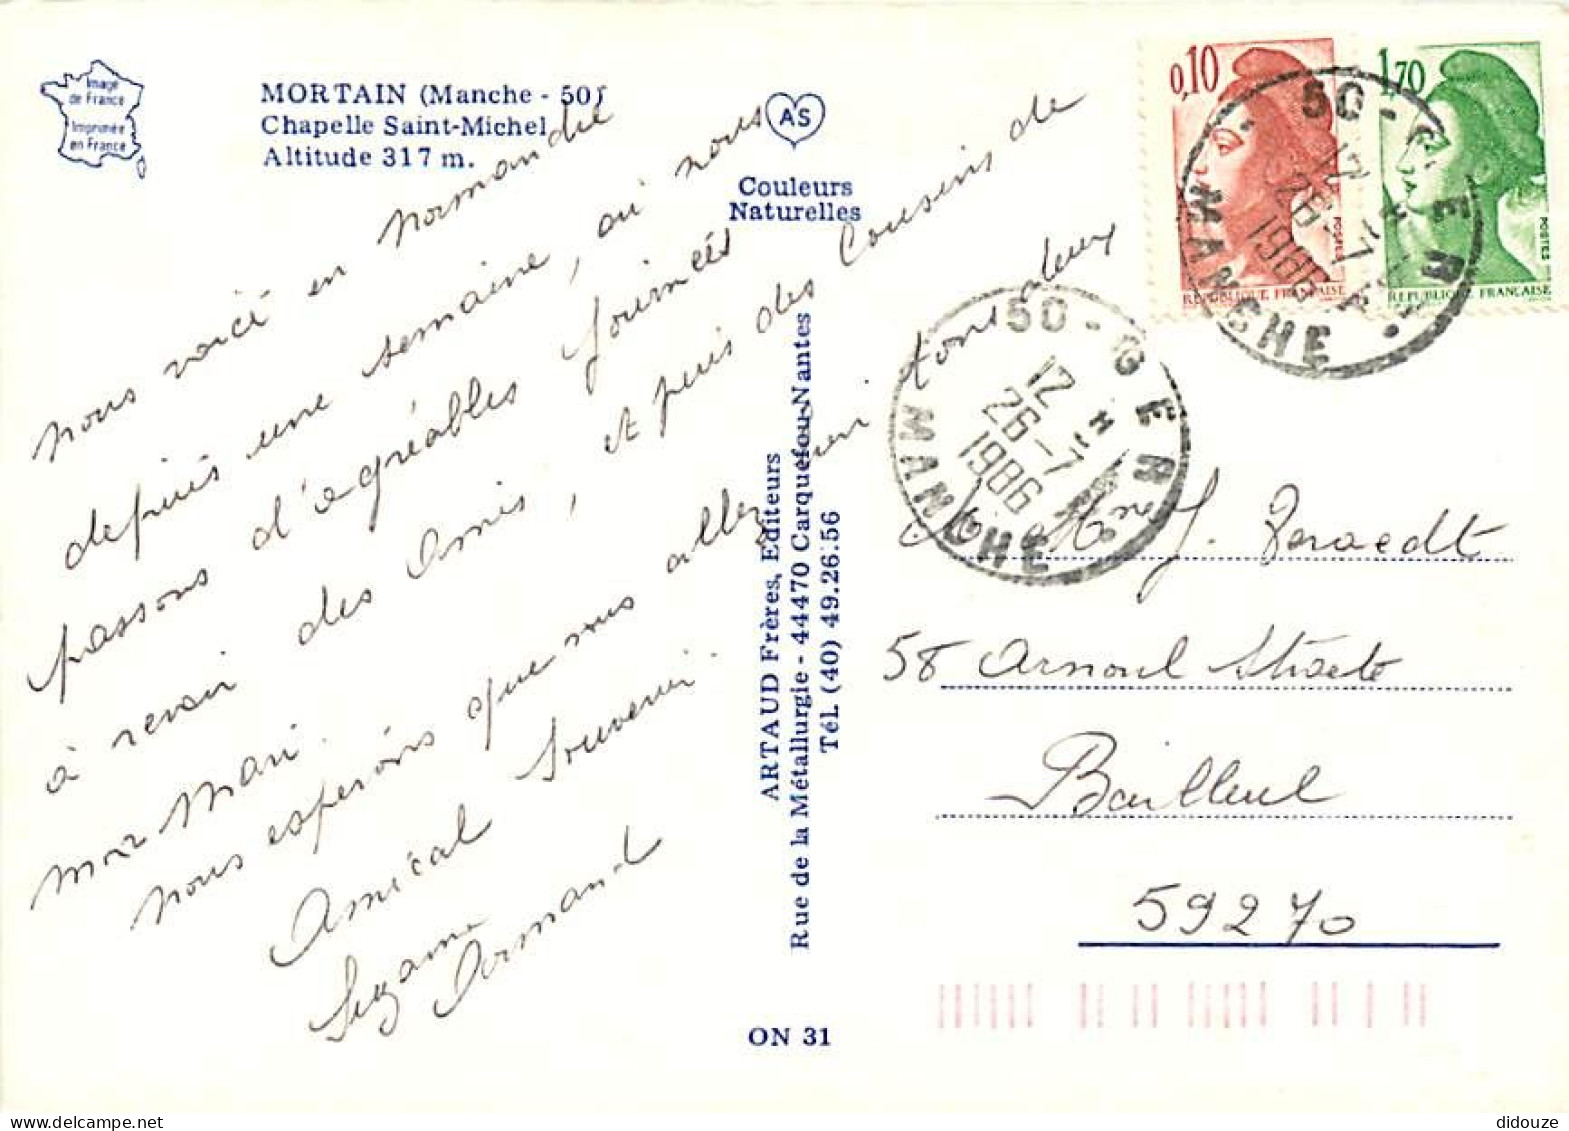 Image
de France
Imprimée
en France
MORTAIN (Manche - 50)
Chapelle Saint-Michel
Altitude 317 m.
AS
Couleurs
Naturelles
0,10
POSTES
REPUBLIQUE FRANÇAISE
1,70
POSTES
REPUBLIQUE FRANÇAISE
50 - GER
12 H
26 - 7
1986
MANCHE
50 - GER
12 H
26 - 7
1986
MANCHE
nous voici en normandie
depuis une semaine, où nous
passons d'agréables journées
à revoir des amis, et puis des cousins de
mon Mari.
nous espérons que vous allez bien tous deux
Amical Souvenir.
Suzanne Armand
ARTAUD Frères, Editeurs
Rue de la Métallurgie - 44470 Carquefou-Nantes
Tél. (40) 49.26.56
ON 31
Mme J.
58 Arnoul Straete
Bailleul
59270
didouze